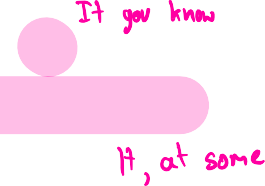 If you know
It, at some